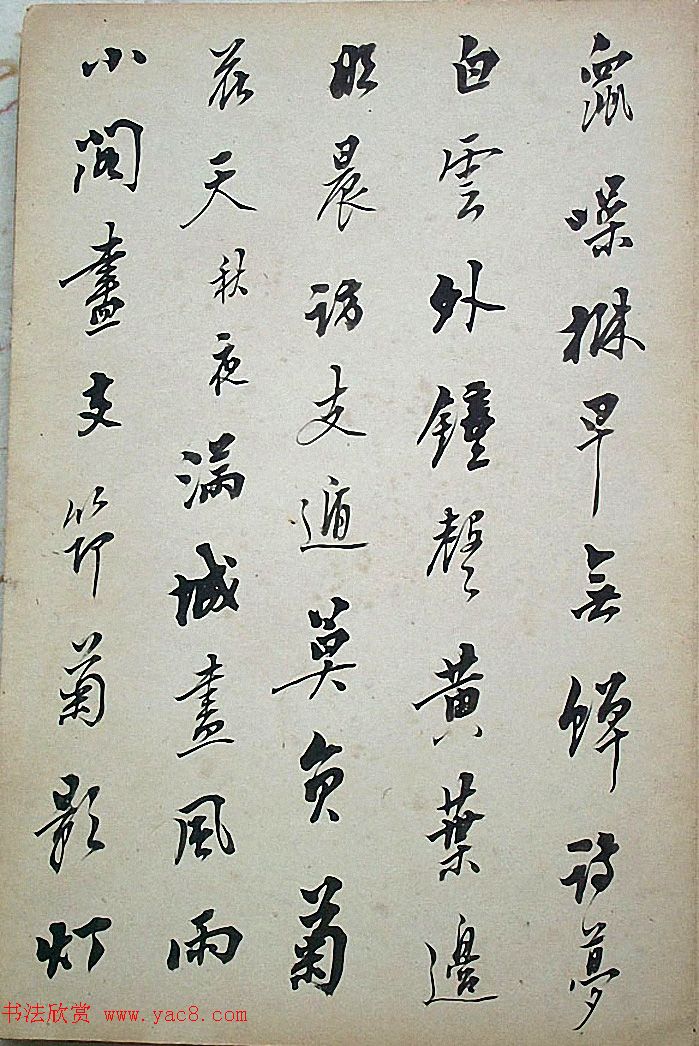 鼠噪早無蟬詩夢
白雲外鐘聲黃葉邊
明晨訪支遁莫負菊
花天秋夜滿城盡風雨
小閣盡支笻菊影灯
书法欣赏 www.yac8.com